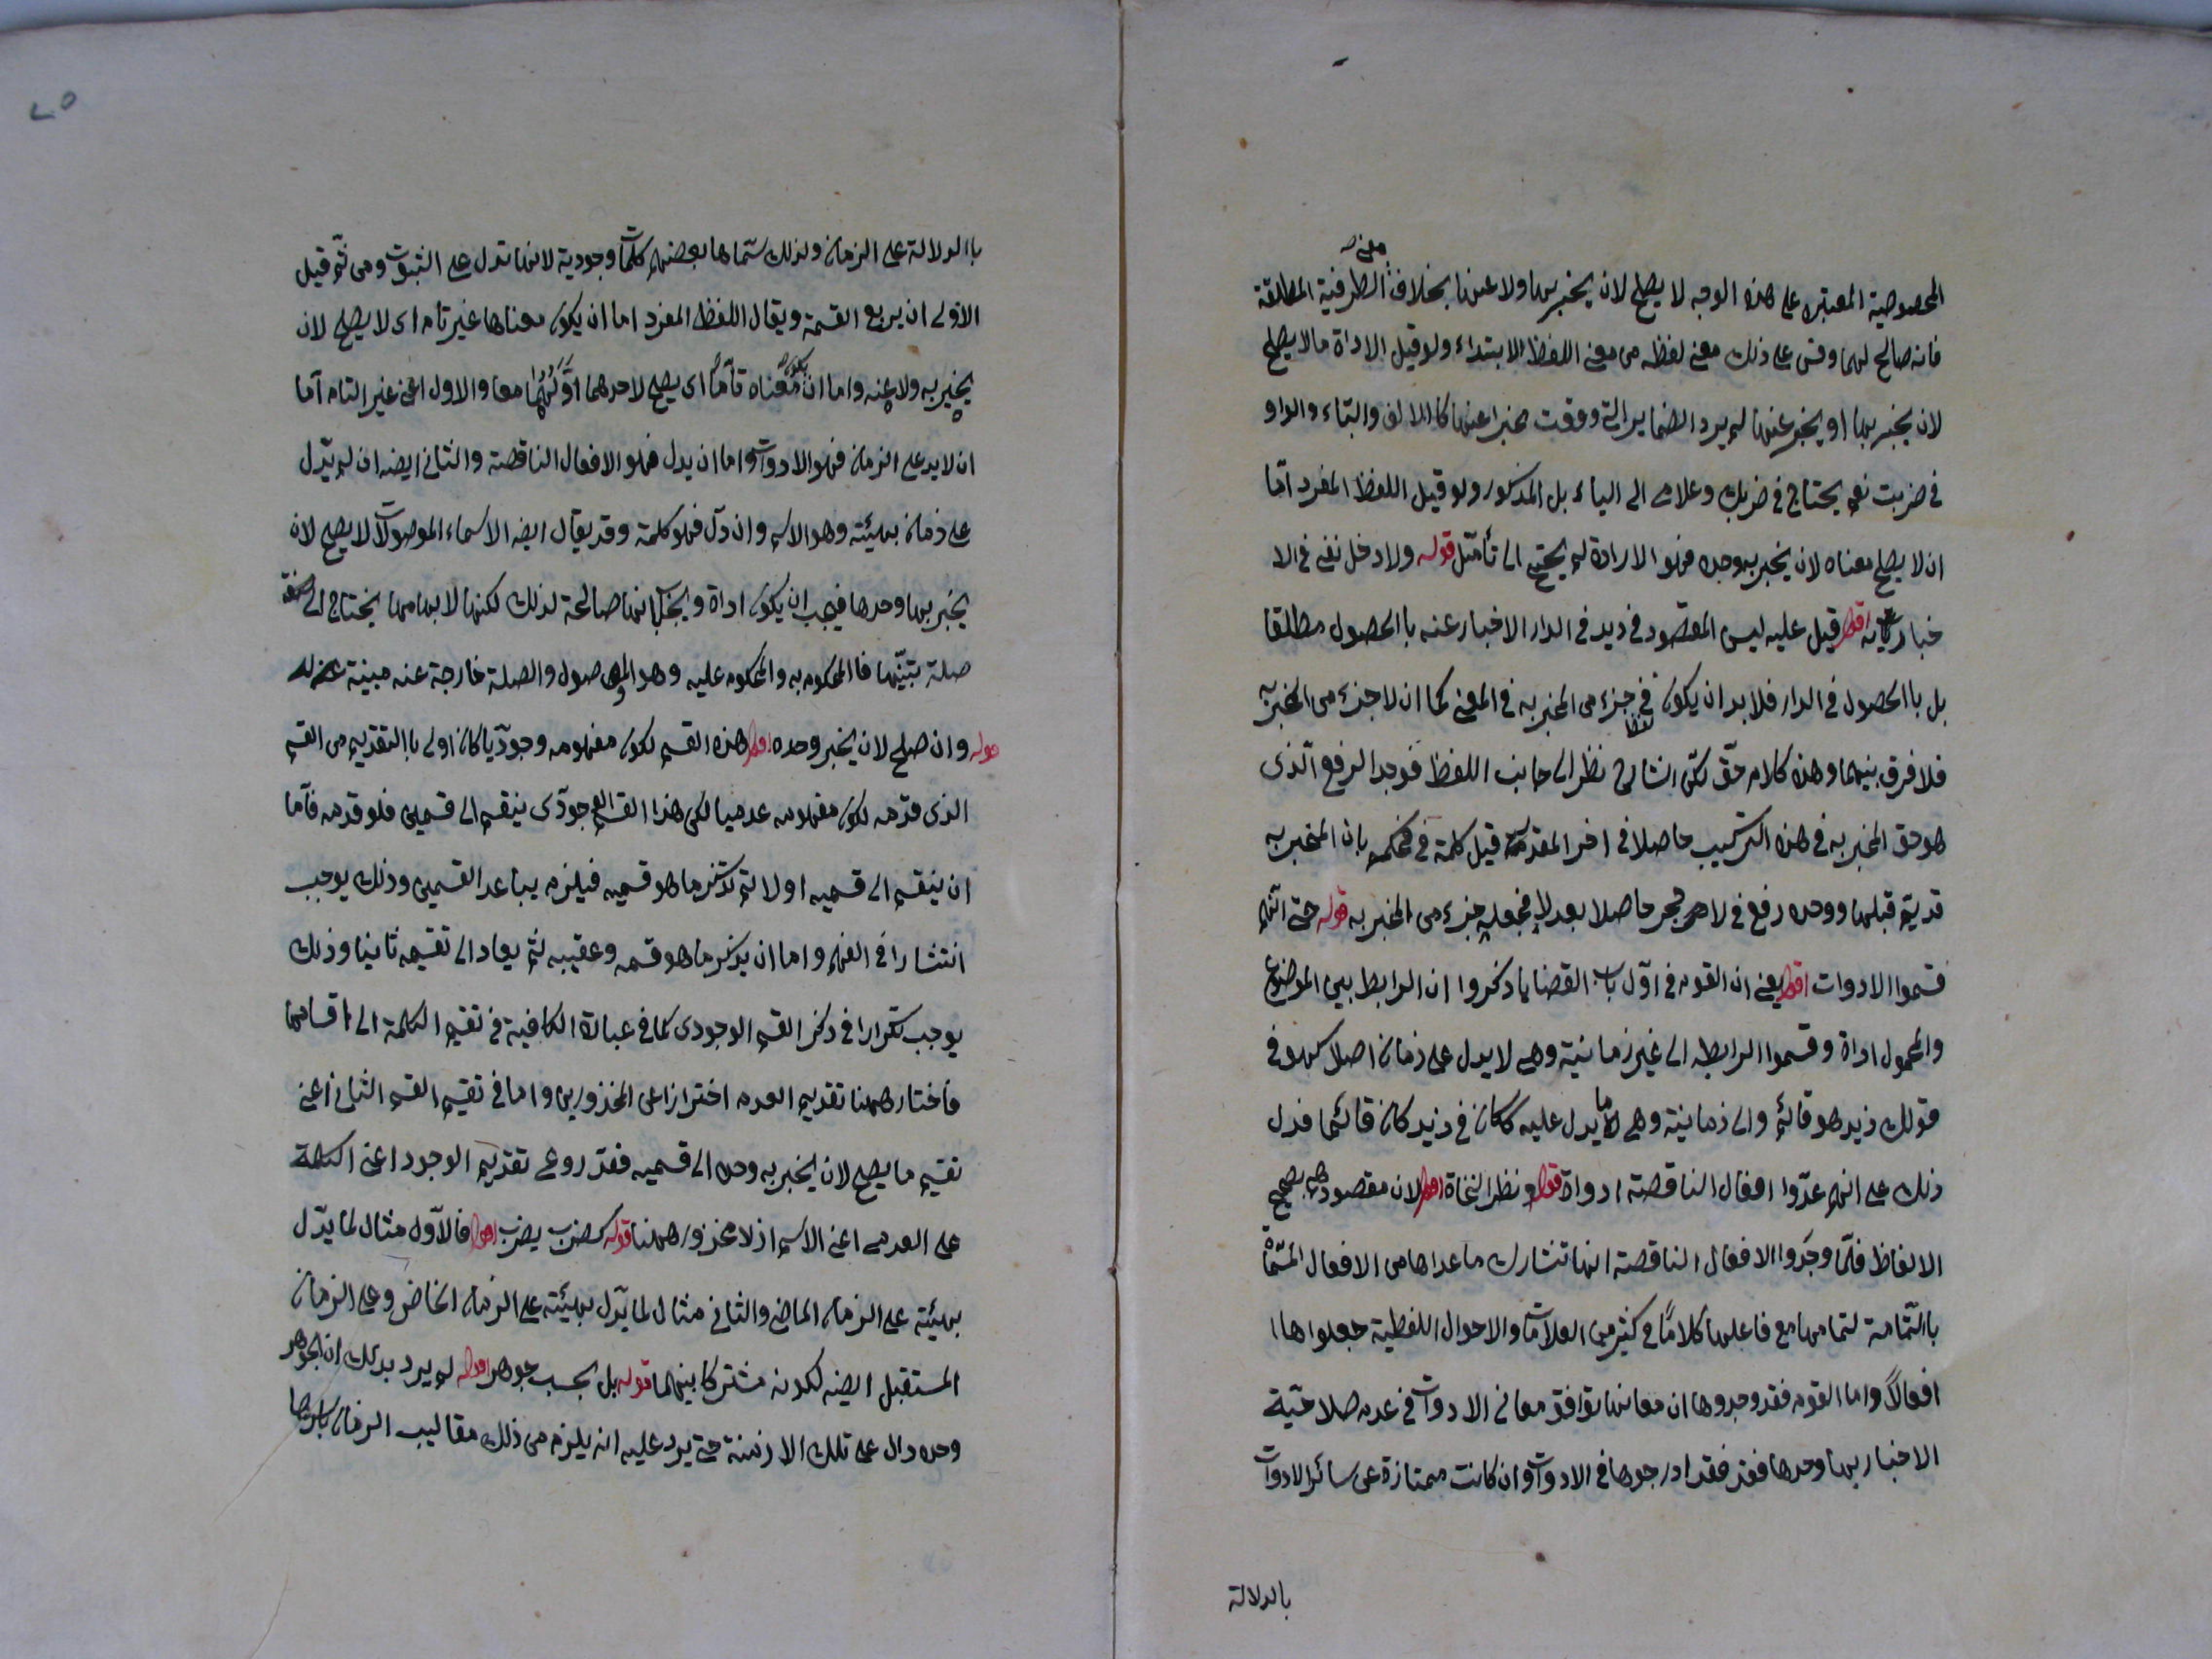 المخصوصية المعتبره على هذه الوجه لا يصلح لان يخبر بها ولا عنها بخلاف الظرفية المطلقة
فانه صالح لهما وقس على ذلك معنى لفظه من معنى اللفظ الابتداء ولو قيل الاداة مالا يصلح
لان يخبر بها او يخبر عنها لم يرد الضماير التى وقعت مخبرا عنها كالالف والتاء والواو
فى ضربت نعم يحتاج فى ضربك وغلامى الى الياء بل المذكور ولو قيل اللفظ المفرد امّا
ان لا يصلح معناه لان يخبر به وحده فهو الاراداة لم يحتج الى تأمّل قوله ولا دخل نفى فى الا
خبار به اقول قيل عليه ليس المقصود فى زيد فى الدار الاخبار عنه باالحصول مطلقا
بل باالحصول فى الدار فلا بد ان يكون فى جزء من المخبر به فى المعنى كما ان لا جزء من المخبر به
فلا فرق بينهما وهذه كلام حقّ لكن الشارح نظر الى جانب اللفظ فوجد الرفع الّذى
هو حق المخبر به فى هذه التركيب حاصلا فى اخر المقدر قيل كلمة فى فحكم بان المخبر به
قد يتم قبلها ووحده رفع فى لا حجر حاصلا بعد لا فجعله جزء من المخبر به قوله حتى انهم
قسموا الادوات اقول يعنى ان القوم فى اوّل باب القضايا ذكروا ان الرابط بين الموضوع
والمحمول اداة وقسموا الرابطه الى غير زمانية وهى لا يدل على زمان اصلا كهو فى
قولك زيد هو قائم والى زمانية وهى ما يدل عليه ككان فى زيد كان قائما فدل
ذلك على انهم عدّوا افعال الناقصة ادواة قوله ونظر النحاة اقول لان مقصودهم تصحيح
الالفاظ فلمّا وجدوا الافعال الناقصة انها تشارك ماعداها من الافعال المسمّاة
باالتّامة لتمامها مع فاعلها كلامًا فى كثير من العلامات والاحوال اللفظية جعلوها ا
افعالًا واما القوم فقد وجدوها ان معانيها توافق معانى الادوات فى عدم صلاحيّة
الاخبار بها وحدها فقد فقد ادرجوها فى الادوات وان كانت ممتازة عن سائر الادوات
بالدلالة
باالدلالة على الزمان ولذلك سمّاها بعضهم كلمات وجودية لانها تدل على الثبوت ومن ثم قيل
الاولى ان يربع القسمة ويقال اللفظ المفرد اما ان يكون معناها غير تام اى لا يصلح لان
يخبر به ولا عنه واما ان يكون معناه تامّا اى يصلح لاحدهما او لهما معا والاول اعنى غير التام اما
ان لا يد على الزمان فهو الادوات واما ان يدل فهو الافعال الناقصة والثانى ايضه ان لم يدّل
على زمان بهيئته وهو الاسم وان دلّ فهو كلمة وقد يقال ايضه الاسماء الموصولات لا يصلح لان
يخبر بها وحدها فيجب ان يكون اداة ويجاب بانها صالحة لذلك لكنها لابهامها يحتاج الى
صلة بتبيّنها فاالمحكوم به والمحكوم عليه وهو الموصول والصلة خارجة عنه مبينة له
قوله وان صلح لان يخبر وحده اقول هذه القسم لكون مفهومه وجوديّا كان اولى باالتقديم من القسم
الذى قدّمه لكون مفهومه عدميا لكن هذا القسم الوجودّى ينقسم الى قسمين فلو قدمه فامّا
ان ينقسم الى قسميه اولا ثم يذكر ما هو قسميه فيلزم يباعد القسمين وذلك يوجب
انتشارا فى الفهم واما ان يذكر ما هو قسمه وعقيبه ثم يعاد الى تقسيمه ثانيا وذلك
يوجب تكرارا فى ذكر القسم الوجودى كما فى عبارة الكافية فى تقسيم الكلمة الى اقسامها
فاختار ههنا تقديم العدم احترازا عن المحذورين واما فى تقسيم القسم الثانى اعنى
تقسيم ما يصلح لان يخبر به وحده الى قسميه فقد روعى تقديم الوجود اعنى الكلمة
على العدمى اعنى الاسم اذ لا محذور ههنا قوله كضرب يضرب اقول فالاوّل مثال لما يدّل
بهيئته على الزمان الماضى والثانى مثال لما يدّل بهيئته على الزمان الحاضر وعلى الزمان
المستقبل ايضه لكونه مشتركا بينهما قوله بل بحسب جوهره اقول لم يرد بذلك ان الجوهر
وحده دال على تلك الازمنة حتى يرد عليه انه يلزم من ذلك مقاليب الزمان باسرها